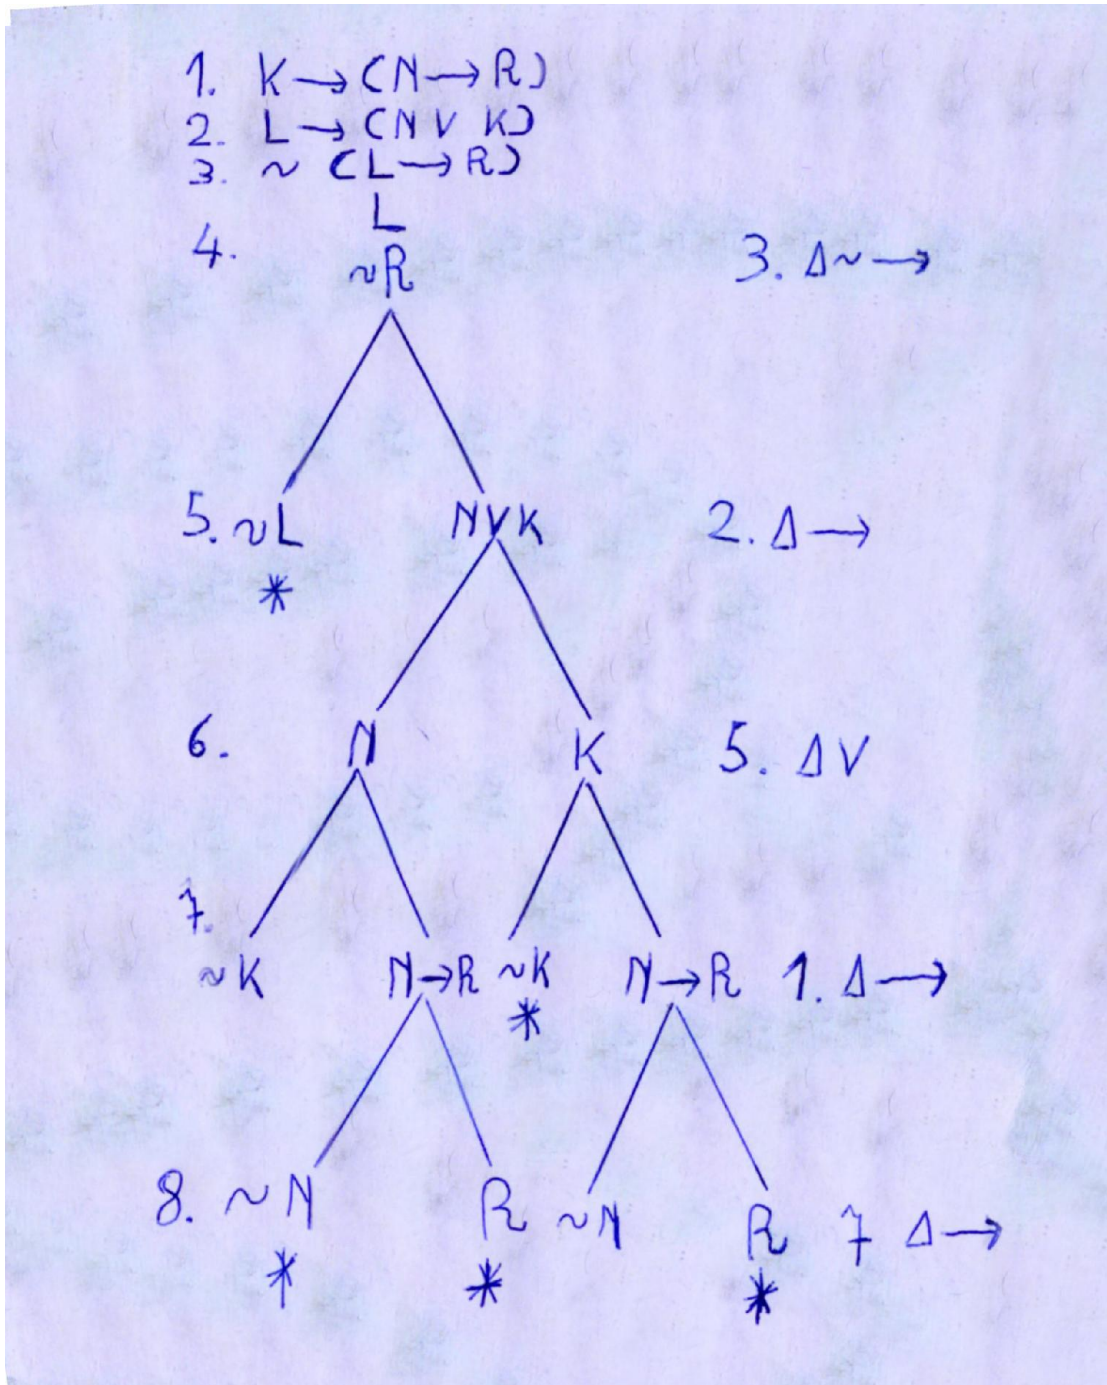 1. K→(N→R)
2. L→(N V K)
3. ~(L→R)
L
4. ~R 3. Δ~→
5. ~L NVK 2. Δ→
*
6. N K 5. ΔV
7.
~K N→R ~K N→R 1. Δ→
*
8. ~N R ~N R 7 Δ→
* * *